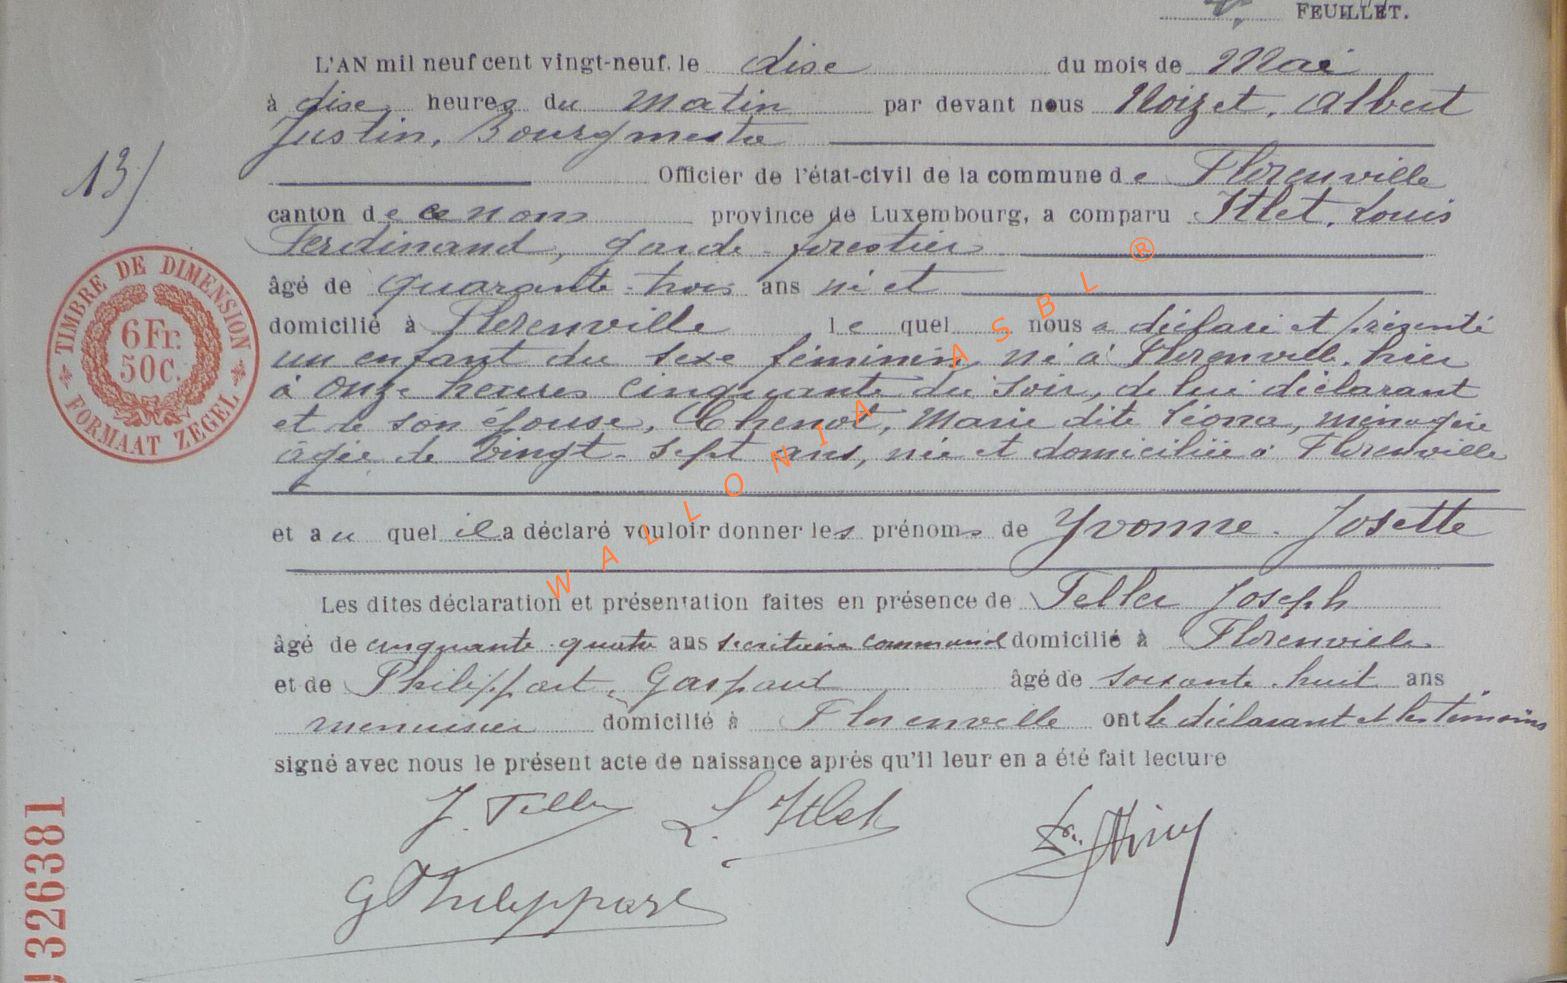 FEUILLET.
L'AN mil neuf cent vingt-neuf, le dise du mois de Mai
à dise heures du Matin par devant nous Noizet, Albert
Justin, Bourgmestre
13/
Officier de l'état-civil de la commune de Florenville
canton de ce nom province de Luxembourg, a comparu Itlet, Louis
Ferdinand, garde-forestier
âgé de quarante-trois ans né et
domicilié à Florenville le quel nous a déclaré et présenté
un enfant du sexe féminin, né à Florenville, hier
à onze heures cinquante du soir, de lui déclarant
et de son épouse, Chenot, Marie dite Léona, ménagère
âgée de vingt-sept ans, née et domiciliée à Florenville
et au quel il a déclaré vouloir donner les prénoms de Yvonne-Josette
Les dites déclaration et présentation faites en présence de Teller Joseph
âgé de cinquante-quatre ans secrétaire communal domicilié à Florenville
et de Philippart, Gaspard âgé de soixante-huit ans
menuisier domicilié à Florenville ont le déclarant et les témoins
signé avec nous le présent acte de naissance aprés qu'il leur en a été fait lecture
J. Teller L. Itlet
G Philippart
TIMBRE DE DIMENSION
6 Fr.
50 C.
FORMAAT ZEGEL
326381
WALLONIA ASBL ®